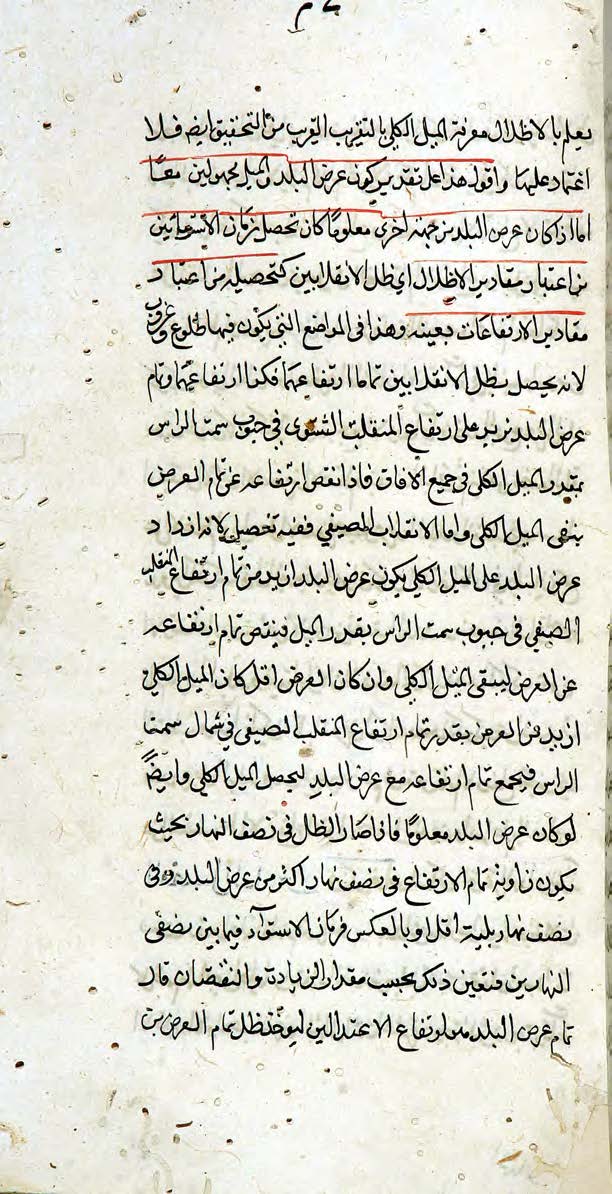 يعلم بالاظلال معرفة الميل الكلى بالتقريب القريب من التحقيق ايضه فلا
اعتماد عليها واقول هذا على تقدير كون عرض البلد والميل مجهولين معًا
اما اذا كان عرض البلد من جهته اخرى معلومًا كان تحصل زمان الاستوائين
من اعتبار مقادير الاظلال اى ظل الانقلابين كتحصيله من اعتبار
مقادير الارتفاعات بعينه وهذا فى المواضع التى يكون فيها طلوع وغروب
لانه يحصل بظل الانقلابين تماما ارتفاعهما فكذا ارتفاعهما وتمام
عرض البلد يزيد على ارتفاع المنقلب الشتوى فى جنوب سمت الراس
بقدر الميل الكلى فى جميع الافاق فاذا نقص ارتفاعه عن تمام العرض
بقى الميل الكلى واما الانقلاب الصيفي ففيه تفصيل لانه ازداد
عرض البلد على الميل الكلى يكون عرض البلد ازيد من تمام ارتفاع المنقلب
الصيفى فى جنوب سمت الراس بقدر الميل فينقص تمام ارتفاعه
عن العرض ليبقى الميل الكلى وان كان العرض اقل كان الميل الكلى
ازيد من العرض بقدر تمام ارتفاع المنقلب الصيفى فى شمال سمت
الراس فيجمع تمام ارتفاعه مع عرض البلد ليحصل الميل الكلى وايضًا
لو كان عرض البلد معلومًا فاذا صار الظل فى نصف النهار بحيث
يكون زاوية تمام الارتفاع فى نصف نهار اكثر من عرض البلد وفى
نصف نهار يليه اقل او بالعكس فزمان الاستوآء فيما بين نصفى
النهارين فتعين ذلك بحسب مقدار الزيادة والنقصان قال
تمام عرض البلد ارتفاع الاعتدالين ليوخذ ظل تمام العرض من